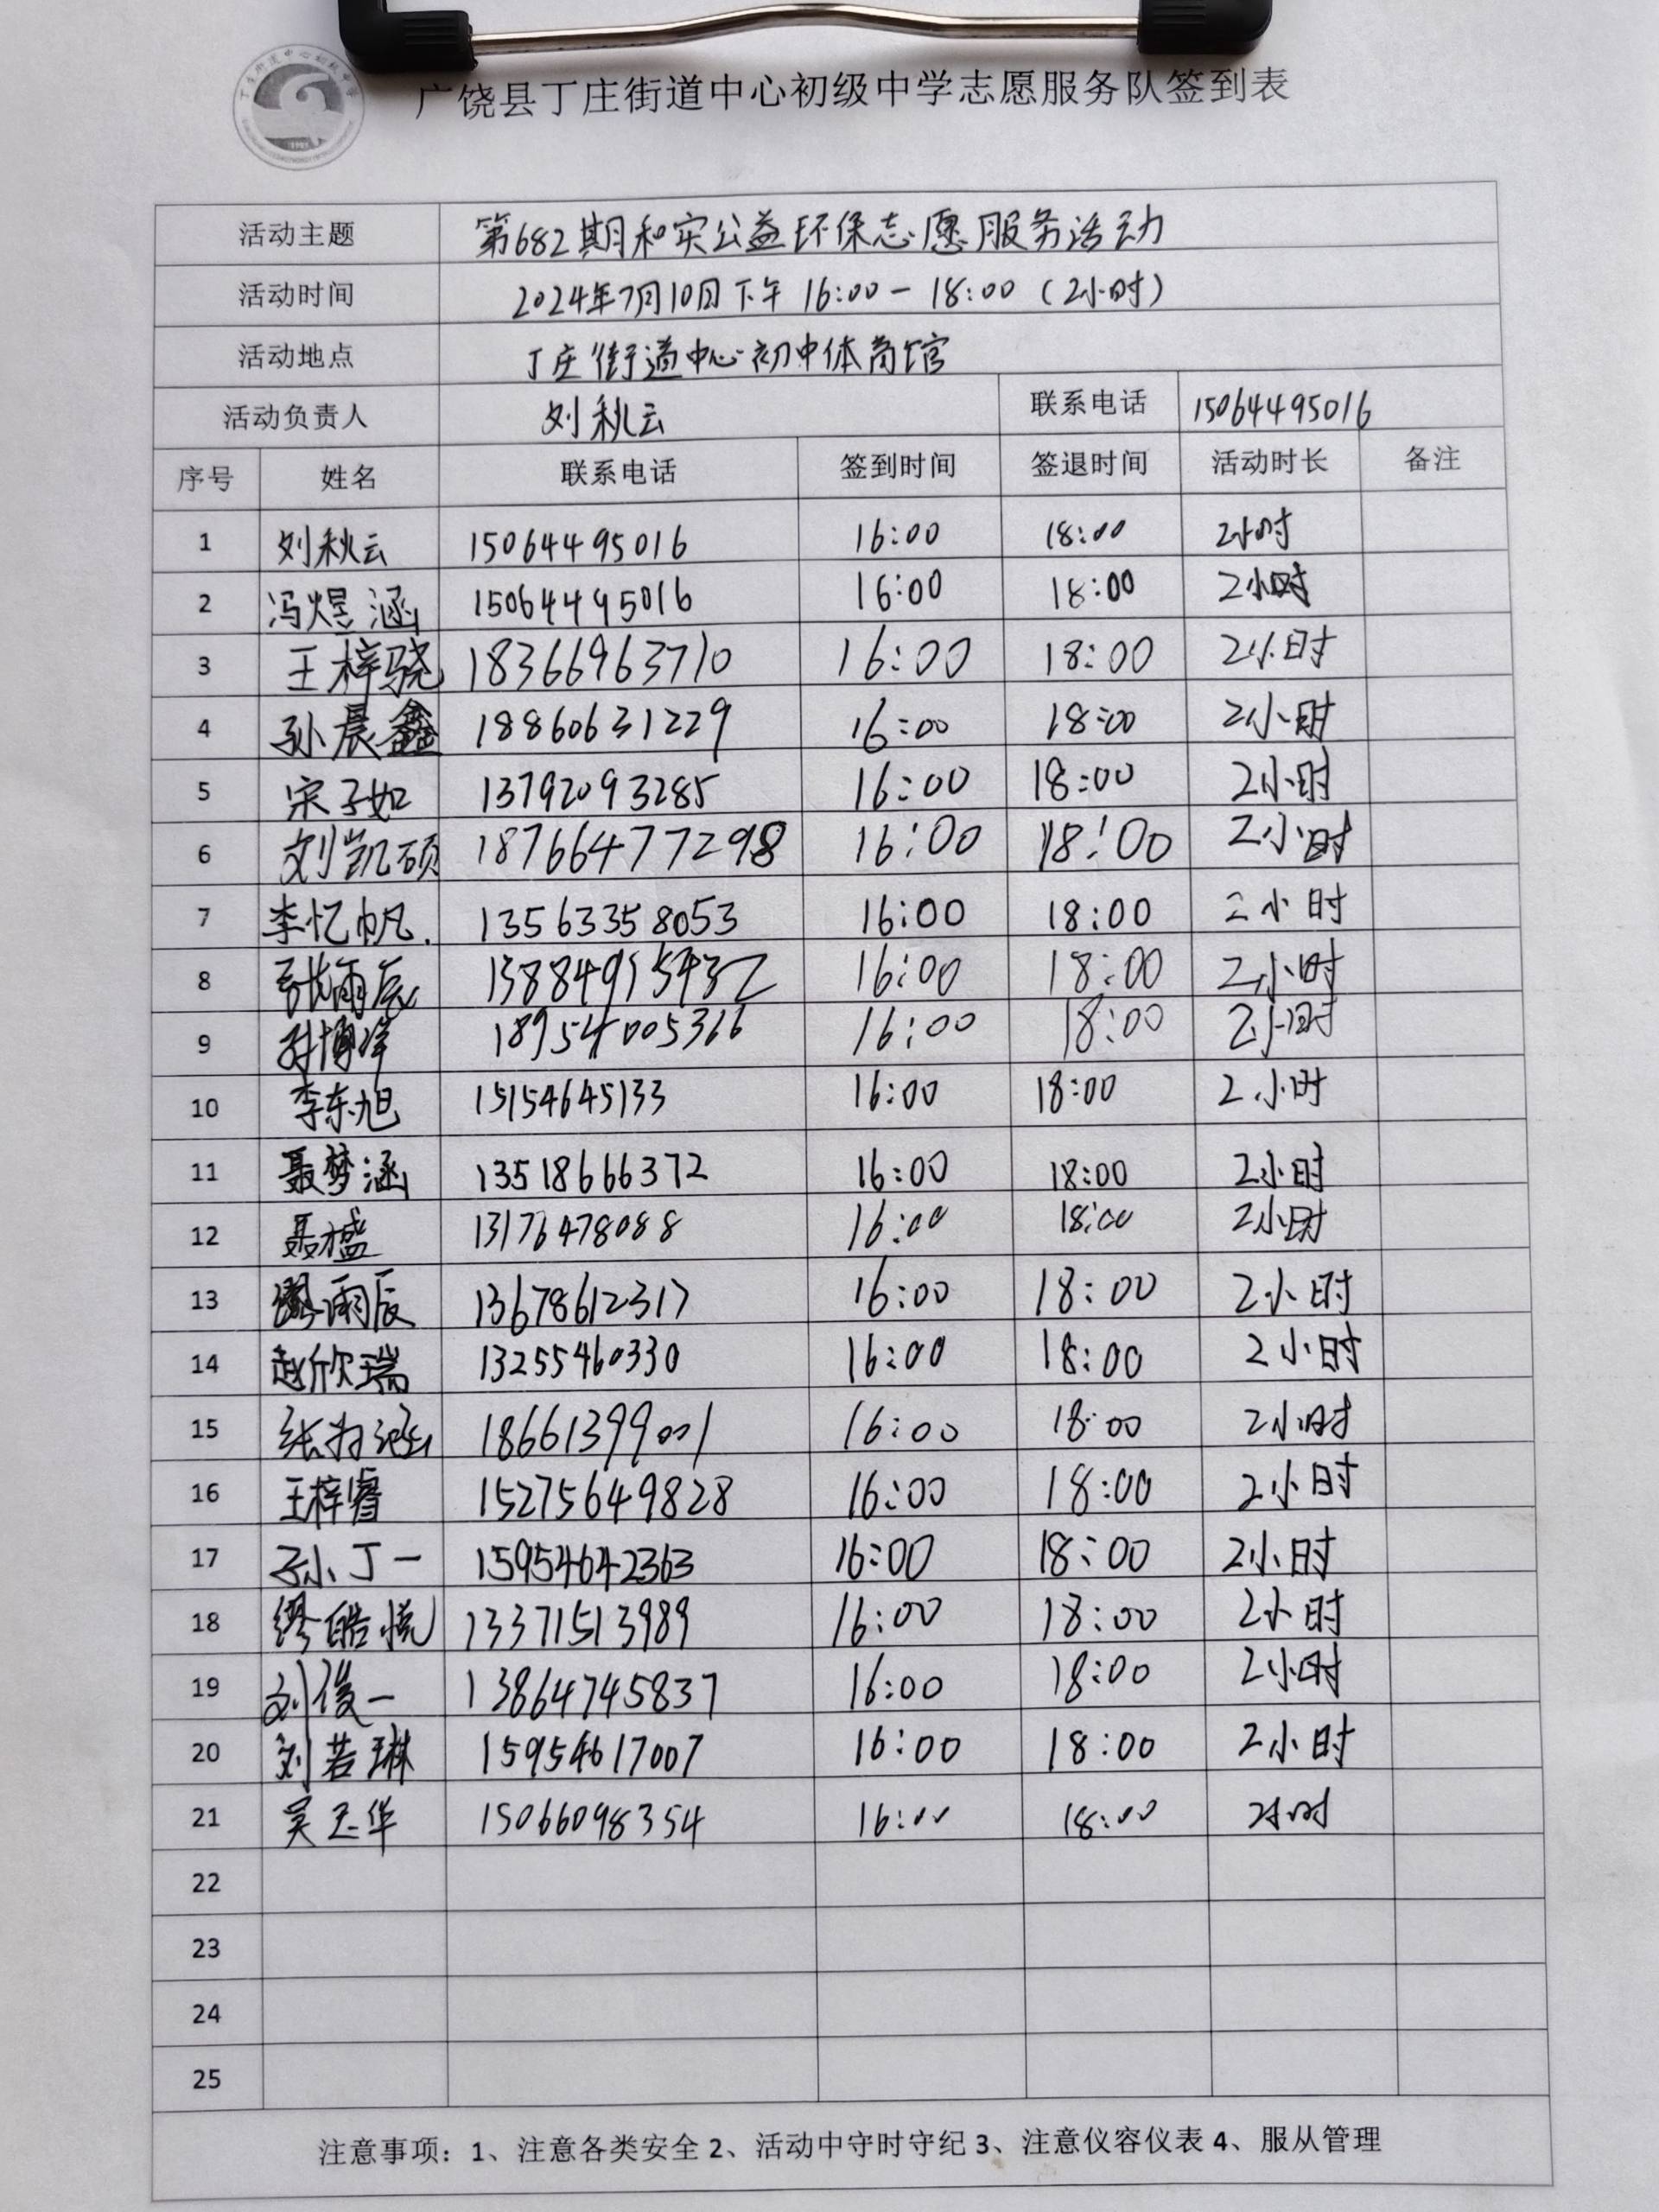 广饶县丁庄街道中心初级中学志愿服务队签到表
活动主题 第682期和实公益环保志愿服务活动
活动时间 2024年7月10日下午 16:00-18:00(2小时)
活动地点 丁庄街道中心初中体育馆
活动负责人 刘秋云 联系电话 15064495016
序号 姓名 联系电话 签到时间 签退时间 活动时长 备注
1 刘秋云 15064495016 16:00 18:00 2小时
2 冯煜涵 15064495016 16:00 18:00 2小时
3 王梓骁 18366963710 16:00 18:00 2小时
4 孙晨鑫 18860631229 16:00 18:00 2小时
5 宋子如 13792093285 16:00 18:00 2小时
6 刘凯硕 18766477298 16:00 18:00 2小时
7 李忆帆. 13563358053 16:00 18:00 2小时
8 张雨辰 13884995432 16:00 18:00 2小时
9 18954005366 16:00 18:00 2小时
10 李东旭 15154645133 16:00 18:00 2小时
11 聂梦涵 13518666372 16:00 18:00 2小时
12 聂楹 13176478088 16:00 18:00 2小时
13 雨辰 13678612317 16:00 18:00 2小时
14 赵欣瑞 13255460330 16:00 18:00 2小时
15 18661399001 16:00 18:00 2小时
16 王梓睿 15275649828 16:00 18:00 2小时
17 孙丁一 15954642363 16:00 18:00 2小时
18 缪皓悦 13371513989 16:00 18:00 2小时
19 刘俊一 13864745837 16:00 18:00 2小时
20 刘若琳 15954617007 16:00 18:00 2小时
21 吴玉华 15066098354 16:00 18:00 2小时
22
23
24
25
注意事项:1、注意各类安全 2、活动中守时守纪 3、注意仪容仪表 4、服从管理